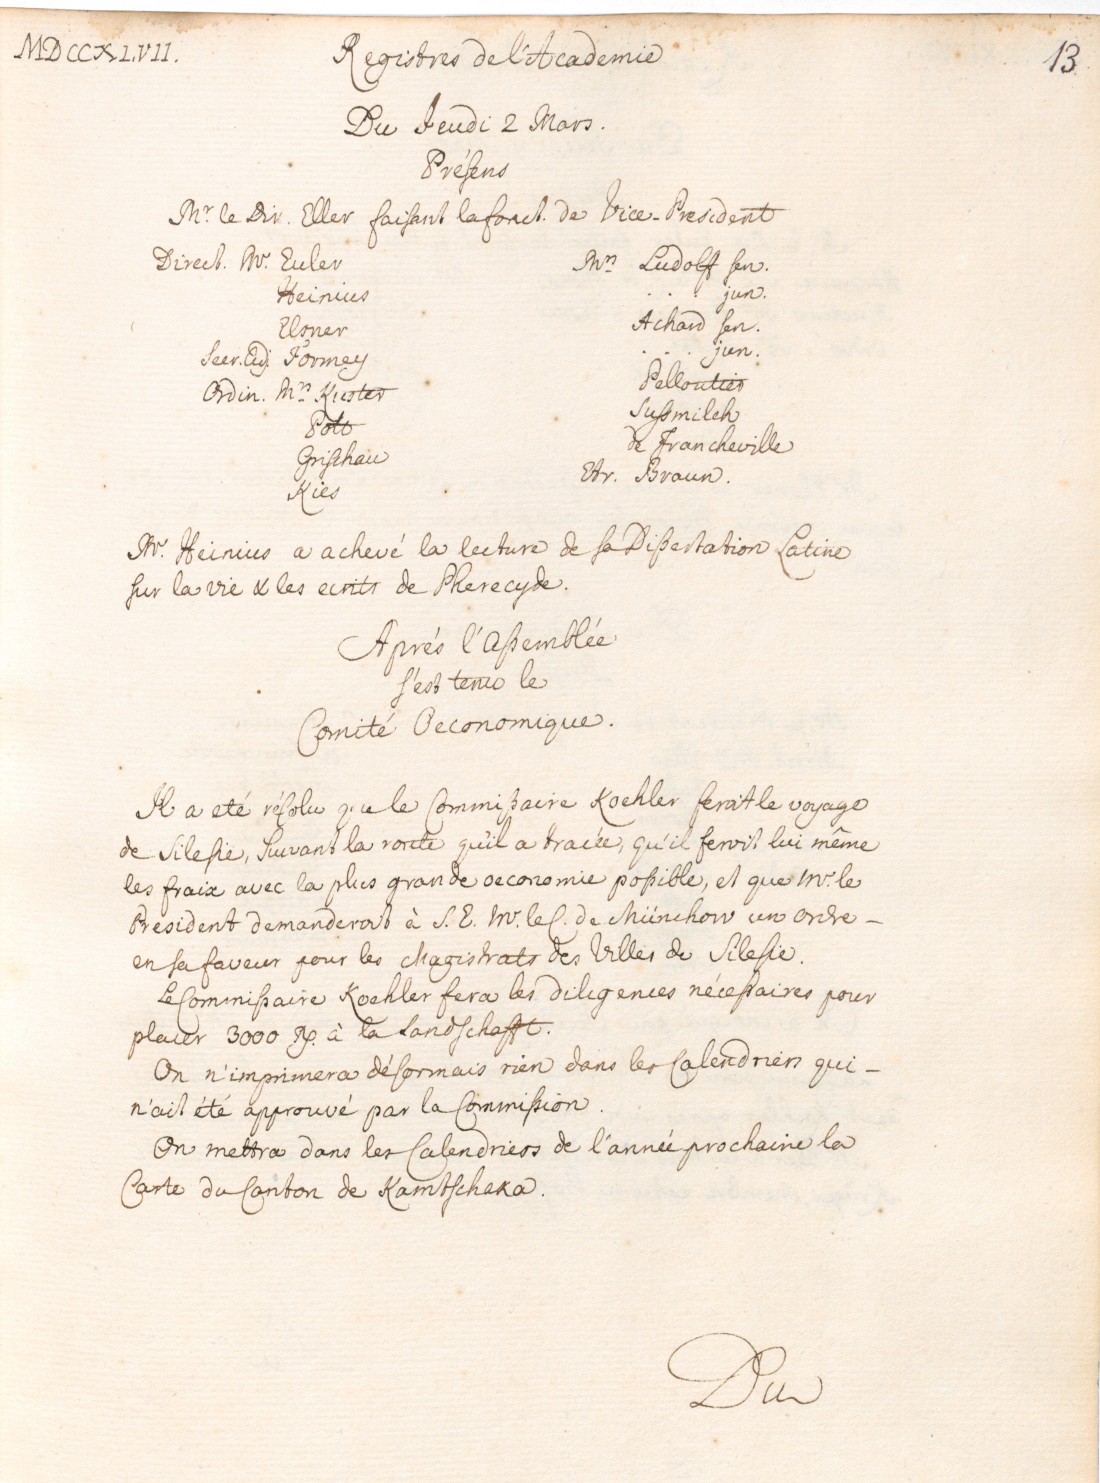 MDCCXLVII.
Registres de l'Academie
13
Du Jeudi 2 Mars.
Présens
Mr le Dir. Eller faisant la fonct. de Vice-President
Direct. Mr. Euler
Heinius
Elsner
Secr. Formey
Ordin. Mrs Kuster
Pott
Grischau
Kies
Mrs Ludolff sen.
. . . jun.
Achard sen.
. . . jun.
Pelloutier
Sussmilch
de Francheville
Etr. Braun.
Mr. Heinius a achevé la lecture de sa Dissertation Latine
sur la vie & les ecrits de Pherecyde.
Aprés l'Assemblée
s'est tenu le
Comité Oeconomique.
Il a eté résolu que le Commissaire Koehler feroit le voyage
de Silesie, suivant la route qu'il a tracée, qu'il feroit lui même
les fraix avec la plus grande oeconomie possible, et que Mr. le
President demanderoit à S. E. Mr. le C. de Münchow un ordre -
en sa faveur pour les Magistrats des Villes de Silesie.
Le Commissaire Koehler fera les diligences nécessaires pour
placer 3000 à la Landschafft.
On n'imprimera désormais rien dans les Calendriers qui -
n'ait été approuvé par la Commission.
On mettra dans les Calendriers de l'année prochaine la
Carte du Canton de Kamtschaka.
Du